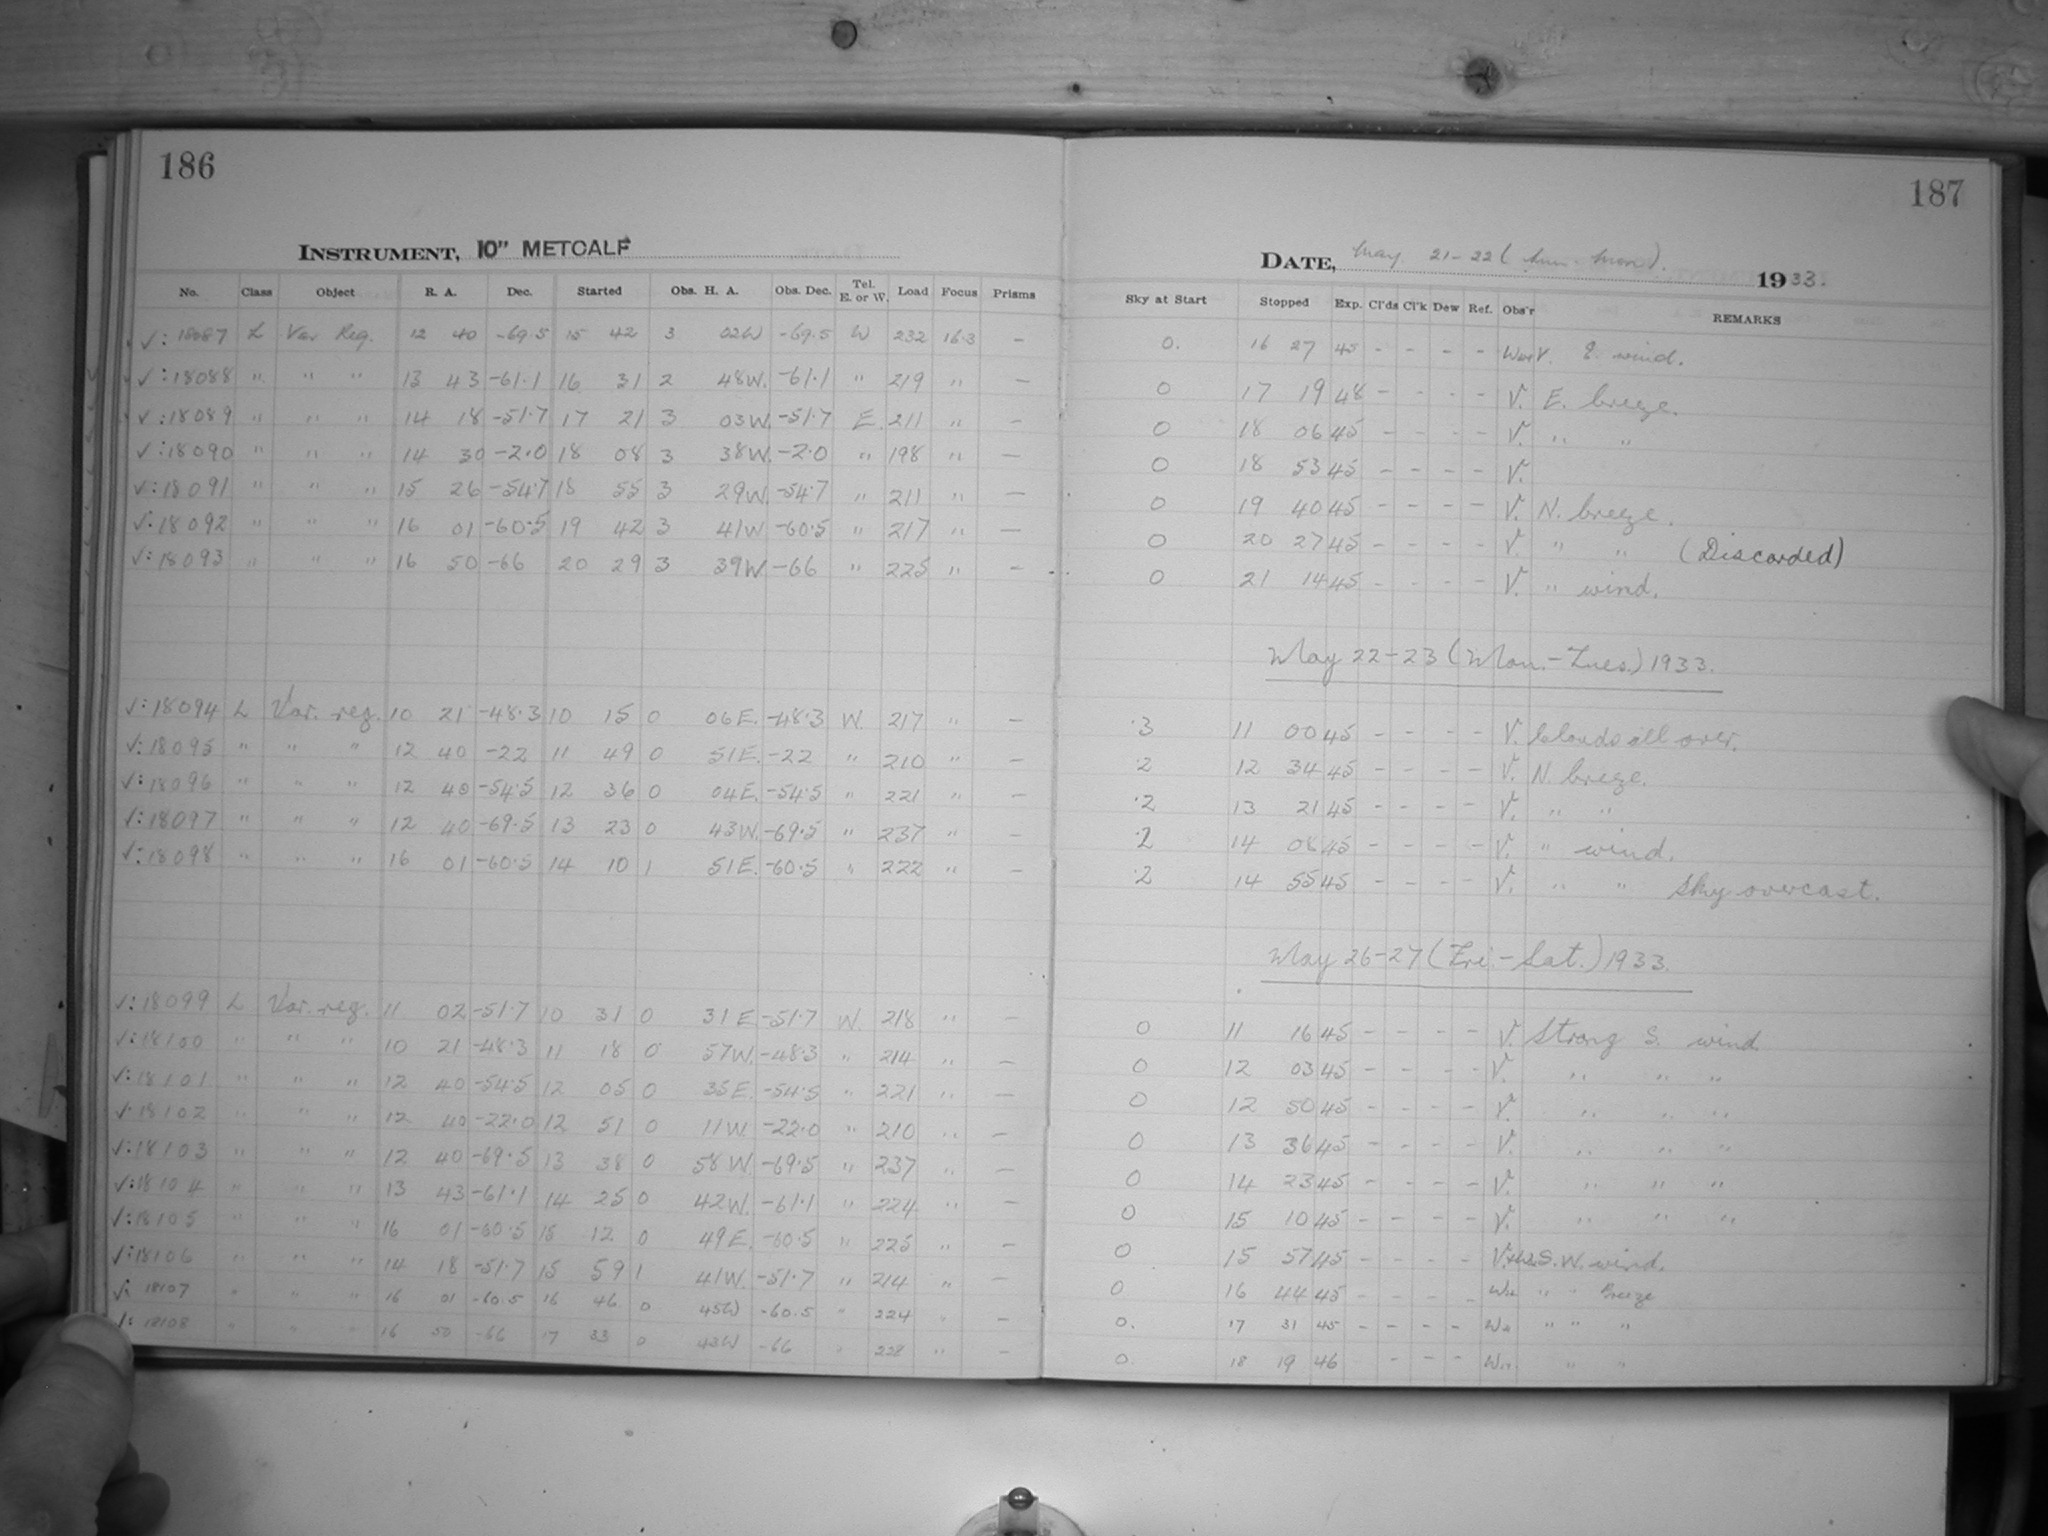 186
187
INSTRUMENT, 10" METCALF
DATE, May 21-22 (Sun-Mon). 1933.
No. Class Object R. A. Dec. Started Obs. H. A. Obs. Dec. Tel. E. or W. Load Focus Prisms Sky at Start Stopped Exp. Cl'ds Cl'k Dew Ref. Obs'r REMARKS
√: 18087 L Var Reg. 12 40 -69.5 15 42 3 02W -69.5 W 232 16.3 - 0. 16 27 45 - - - - V. E. wind.
√: 18088 " " " 13 43 -61.1 16 31 2 48W. -61.1 " 219 " - 0 17 19 48 - - - V. E. breeze.
√: 18089 " " " 14 18 -51.7 17 21 3 03W. -51.7 E. 211 " - 0 18 06 45 - - - - V. " "
√: 18090 " " " 14 30 -2.0 18 08 3 38W. -2.0 " 198 " - 0 18 53 45 - - - - V.
√: 18091 " " " 15 26 -54.7 18 55 3 29W. -54.7 " 211 " - 0 19 40 45 - - - - V. N. breeze.
√: 18092 " " " 16 01 -60.5 19 42 3 41W -60.5 " 217 " - 0 20 27 45 - - - - V. " " (Discarded)
√: 18093 " " " 16 50 -66 20 29 3 39W -66 " 225 " - 0 21 14 45 - - - - V. " wind.
May 22-23 (Mon.-Tues.) 1933.
√: 18094 L Var. reg. 10 21 -48.3 10 15 0 06E. -48.3 W. 217 " - .3 11 00 45 - - - - V. Clouds all over.
√: 18095 " " " 12 40 -22 11 49 0 51E. -22 " 210 " - .2 12 34 45 - - - - V. N. breeze.
√: 18096 " " " 12 40 -54.5 12 36 0 04E. -54.5 " 221 " - .2 13 21 45 - - - - V. " "
√: 18097 " " " 12 40 -69.5 13 23 0 43W. -69.5 " 237 " - .2 14 08 45 - - - - V. " wind.
√: 18098 " " " 16 01 -60.5 14 10 1 51E. -60.5 " 222 " - .2 14 55 45 - - - - V. " " Sky overcast.
May 26-27 (Fri.-Sat.) 1933.
√: 18099 L Var. reg. 11 02 -51.7 10 31 0 31E -51.7 W. 218 " - 0 11 16 45 - - - - V. Strong S. wind
√: 18100 " " " 10 21 -48.3 11 18 0 57W. -48.3 " 214 " - 0 12 03 45 - - - - V. " " "
√: 18101 " " " 12 40 -54.5 12 05 0 35E. -54.5 " 221 " - 0 12 50 45 - - - - V. " " "
√: 18102 " " " 12 40 -22.0 12 51 0 11W. -22.0 " 210 " - 0 13 36 45 - - - - V. " " "
√: 18103 " " " 12 40 -69.5 13 38 0 58W. -69.5 " 237 " - 0 14 23 45 - - - - V. " " "
√: 18104 " " " 13 43 -61.1 14 25 0 42W. -61.1 " 224 " - 0 15 10 45 - - - - V. " " "
√: 18105 " " " 16 01 -60.5 15 12 0 49E. -60.5 " 225 " - 0 15 57 45 - - - - S. W. wind.
√: 18106 " " " 14 18 -51.7 15 59 1 41W. -51.7 " 214 " - 0 16 44 45 - - - - " " Breeze
√: 18107 " " " 16 01 -60.5 16 46 0 45W -60.5 " 224 " - 0. 17 31 45 - - - - " " "
√: 18108 " " " 16 50 -66 17 33 0 43W -66 " 228 " - 0. 18 19 46 - - - " "